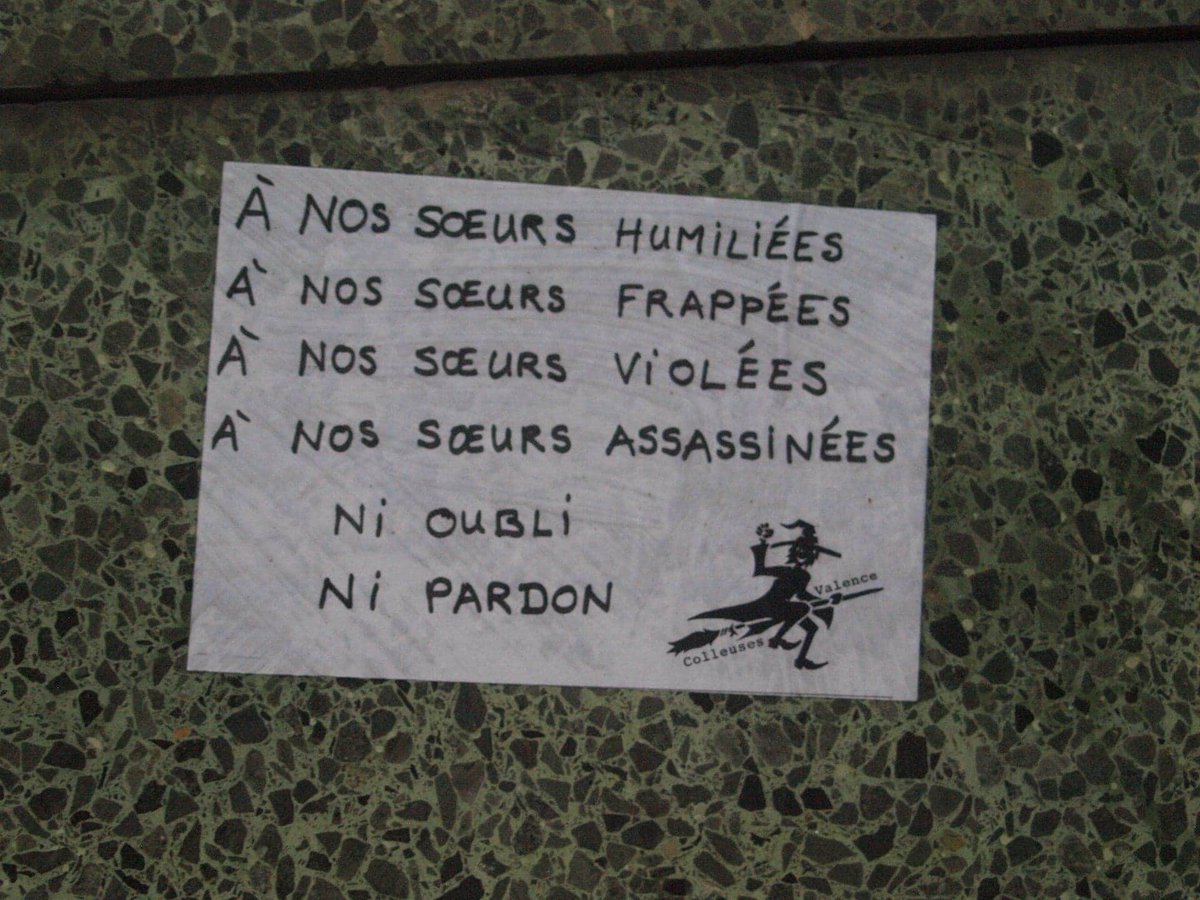 À NOS SŒURS HUMILIÉES
À NOS SŒURS FRAPPÉES
À NOS SŒURS VIOLÉES
À NOS SŒURS ASSASSINÉES
NI OUBLI
NI PARDON
Valence
Colleuses